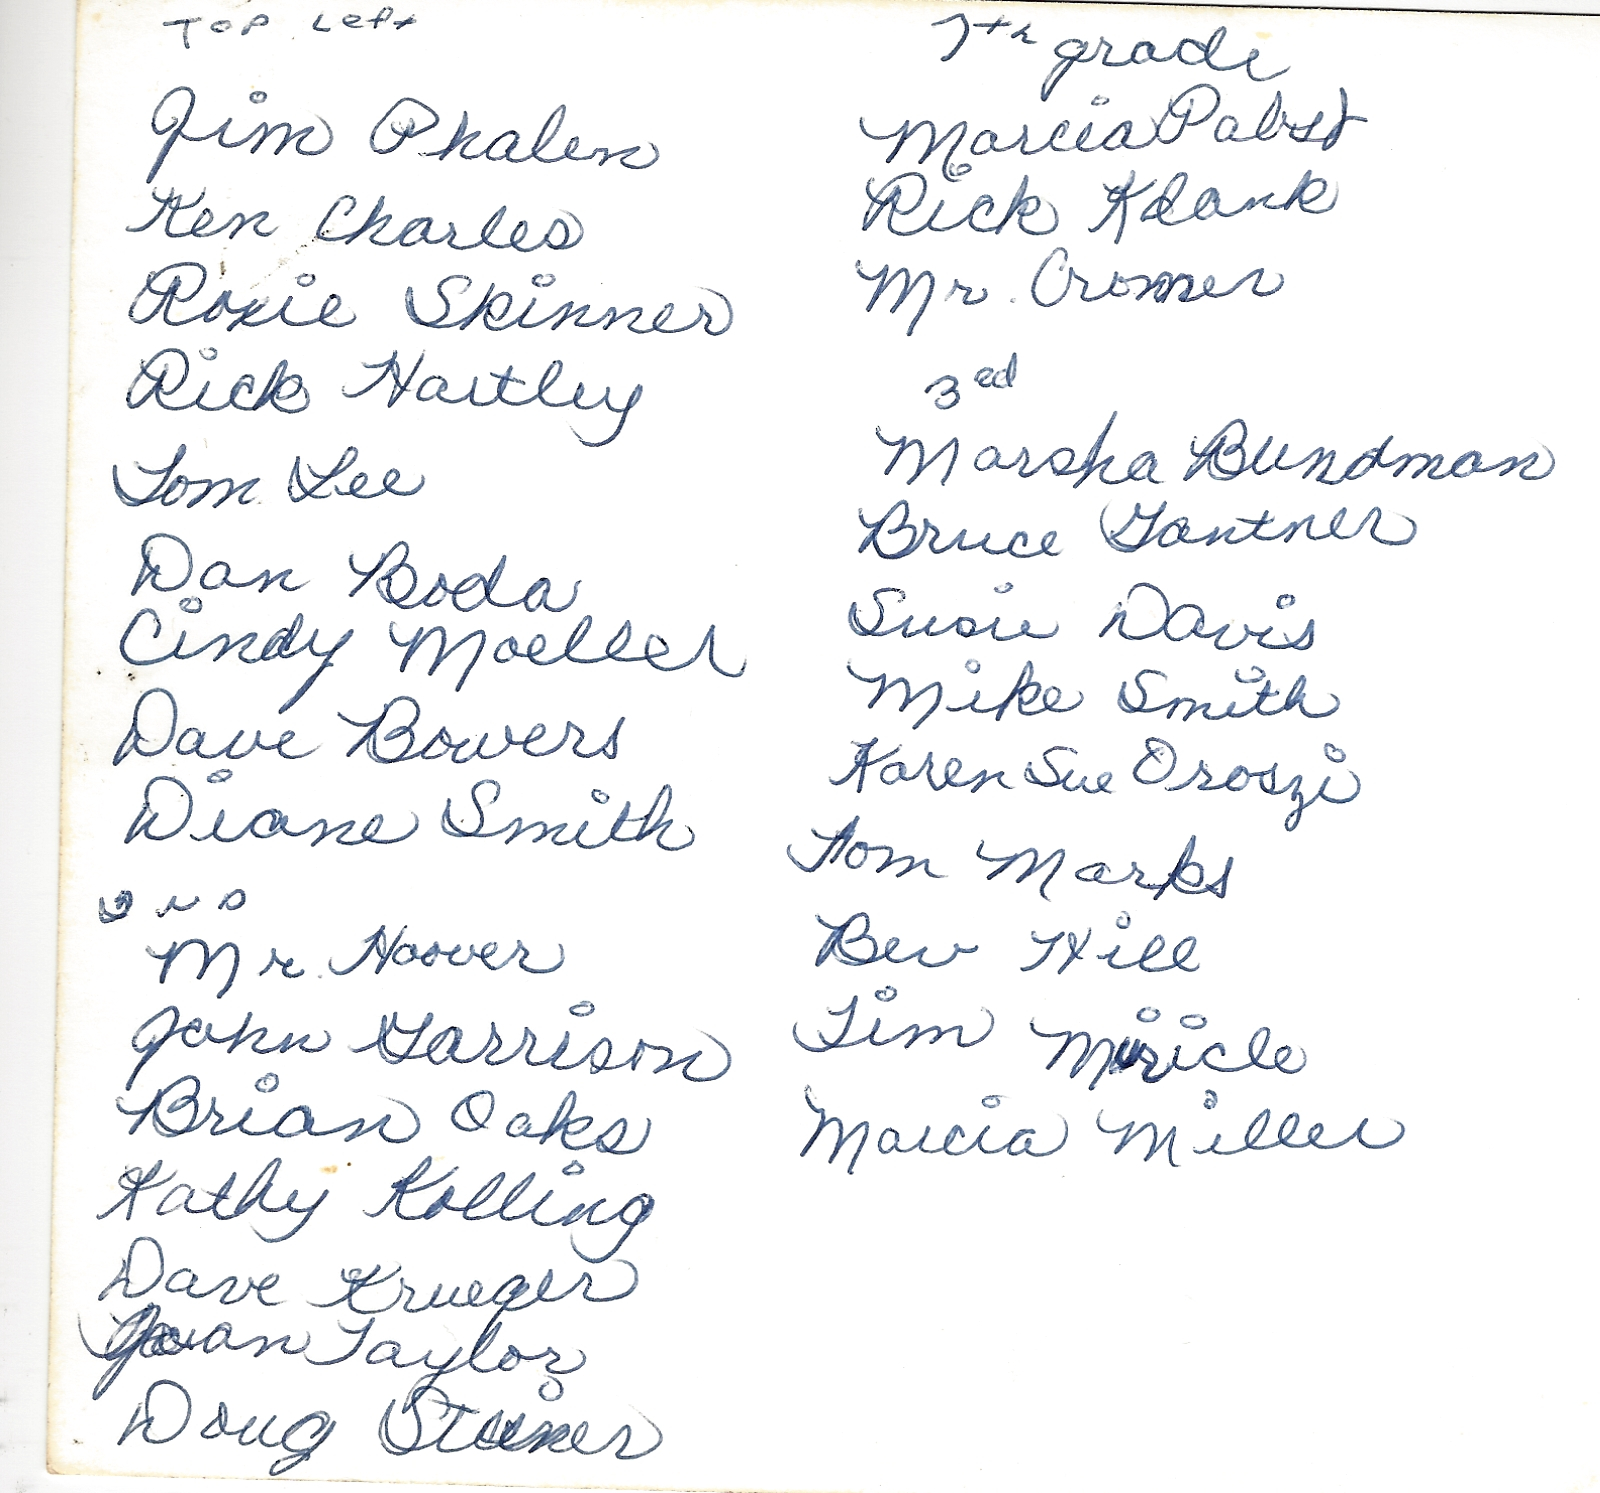 Top Left
Jim Phalen
Ken Charles
Roxie Skinner
Rick Hartley
Tom Lee
Dan Boda
Cindy Moeller
Dave Bowers
Diane Smith
2ND
Mr. Hoover
John Garrison
Brian Oaks
Kathy Kolling
Dave Krueger
Joan Taylor
Doug Steiner
7th grade
Marcia Pabst
Rick Klank
Mr. Cromer
3ed
Marsha Bundman
Bruce Gantner
Susie Davis
Mike Smith
Karen Sue Oroszi
Tom Marks
Bev Hill
Tim Miricle
Marcia Miller